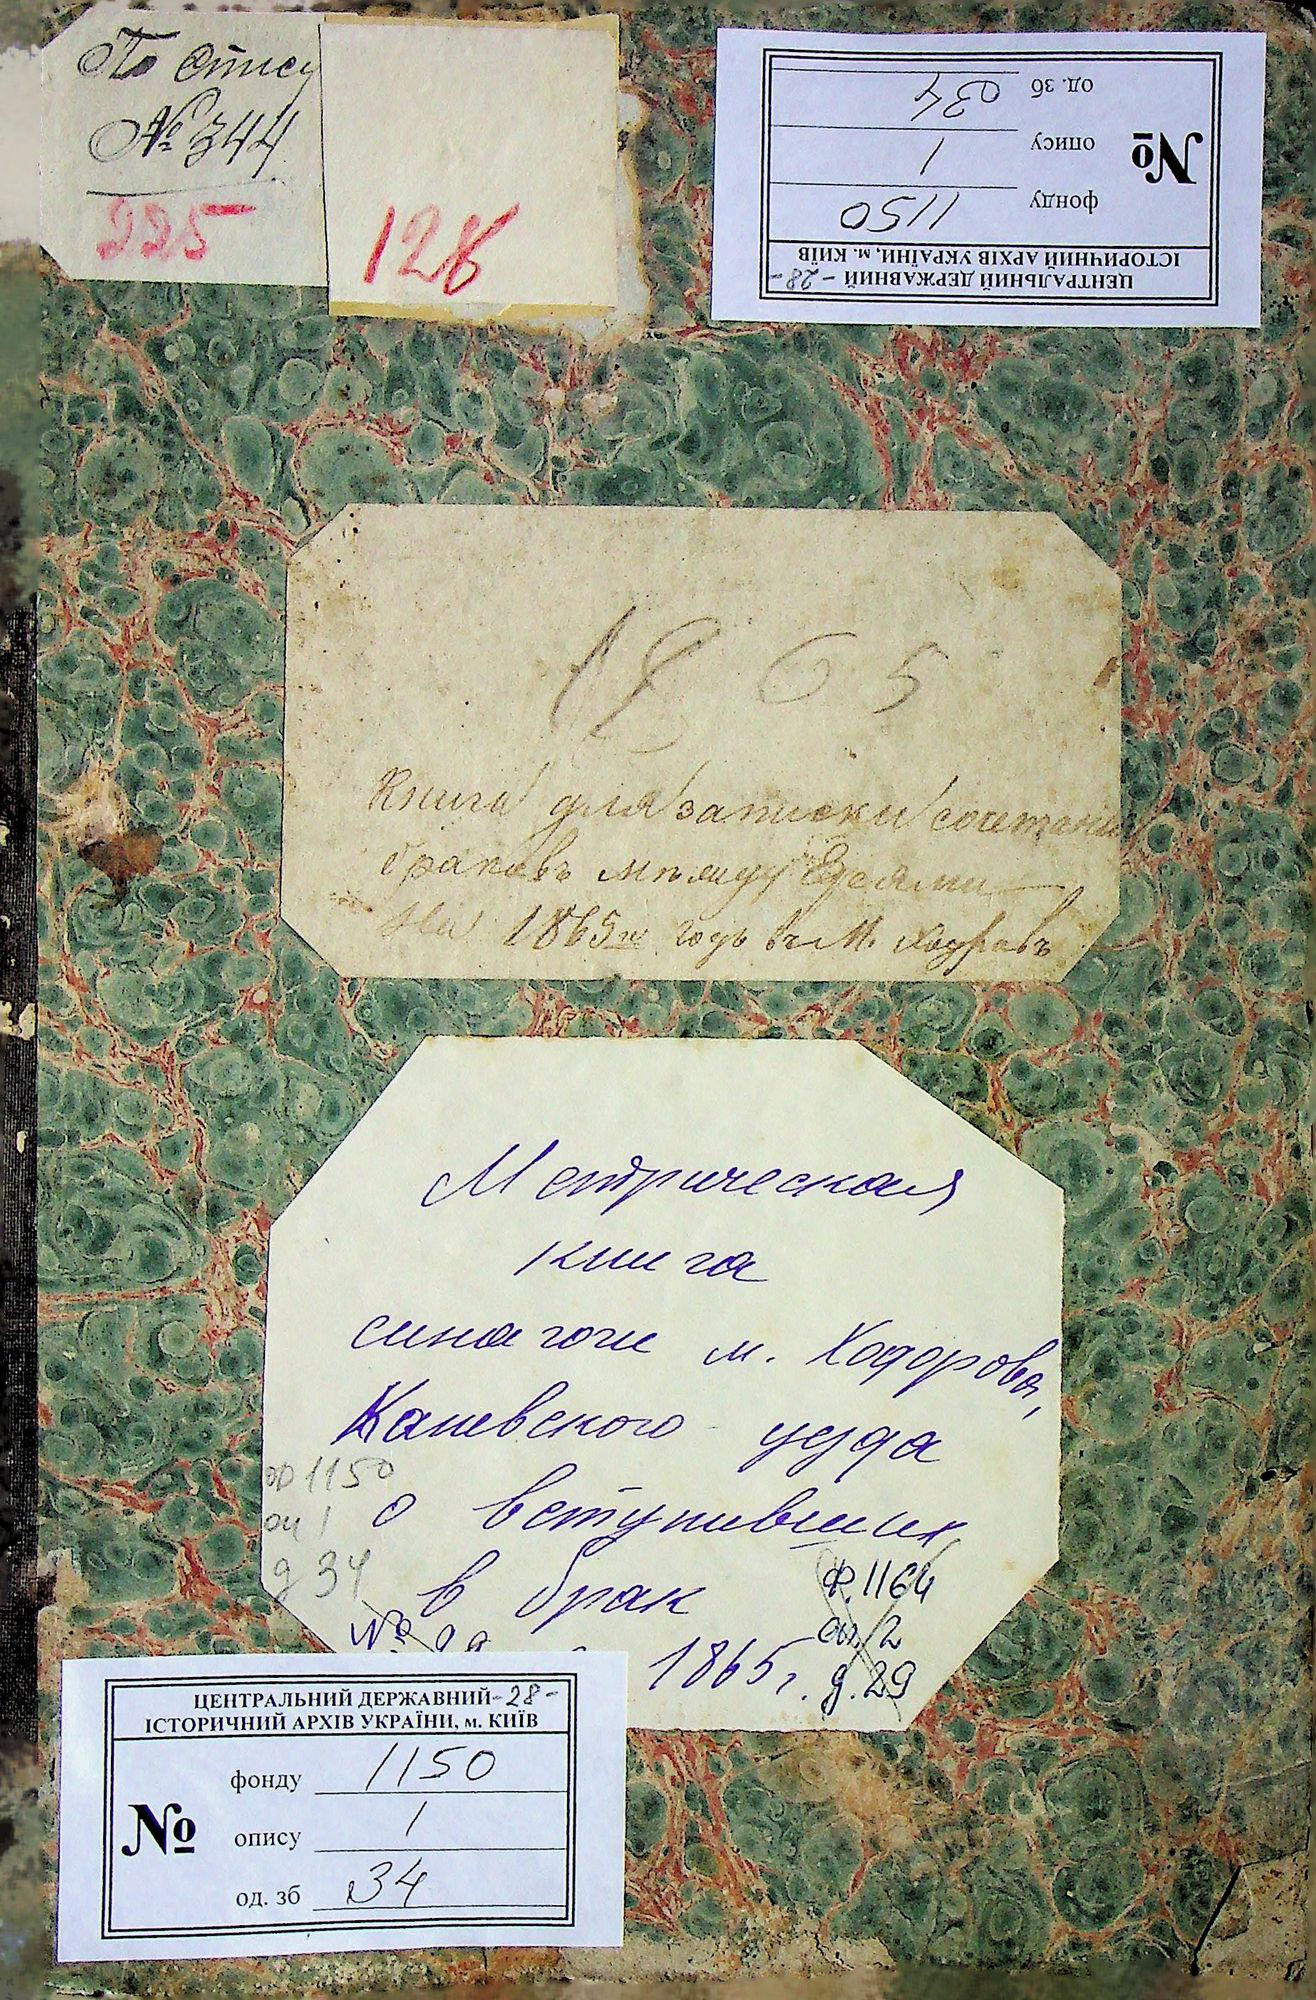 По опису
№ 344
225
128
ЦЕНТРАЛЬНИЙ ДЕРЖАВНИЙ -28-
ІСТОРИЧНИЙ АРХІВ УКРАЇНИ, м. КИЇВ
№
фонду 1150
опису 1
од. зб 34
1865
Книга для записки сочетании
браковъ между Евреями
на 1865й годъ въ М. Ходоровъ
Метрическая
книга
синагоги м. Ходорова,
Каневского уезда
о вступивших
в брак
1865 г.
ф 1150
оп 1
д 34
ф. 1164
оп. 2
д. 29
ЦЕНТРАЛЬНИЙ ДЕРЖАВНИЙ -28-
ІСТОРИЧНИЙ АРХІВ УКРАЇНИ, м. КИЇВ
№
фонду 1150
опису 1
од. зб 34